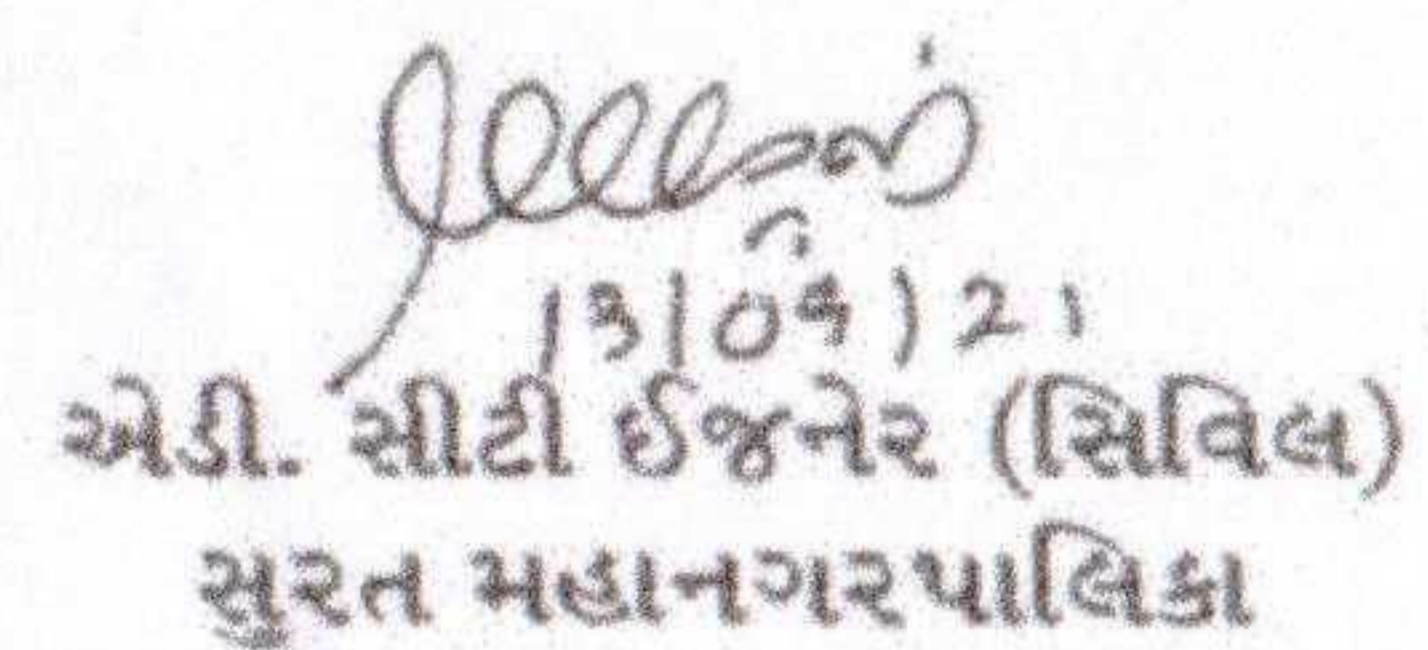 13/09/21
એડી. સીટી ઈજનેર (સિવિલ)
સુરત મહાનગરપાલિકા